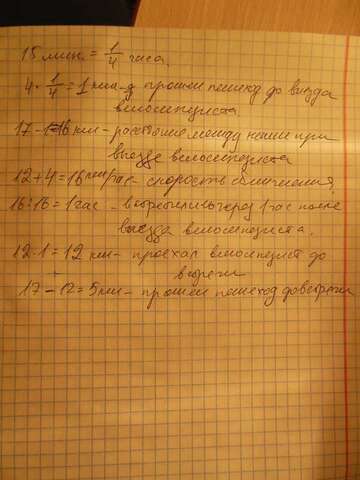 15 мин. = 1/4 часа.
4 · 1/4 = 1 км - прошел пешеход до выезда
велосипедиста.
17 - 1 = 16 км - расстояние между ними при
выезде велосипедиста
12 + 4 = 16 км/час - скорость сближения.
16 : 16 = 1 час - встретились через 1 час после
выезда велосипедиста.
12 · 1 = 12 км - проехал велосипедист до
встречи
17 - 12 = 5 км - прошел пешеход до встречи